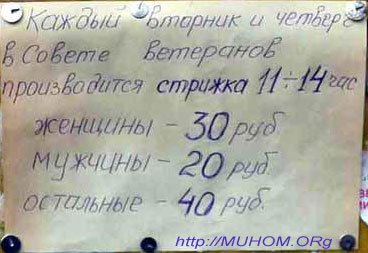 Каждый вторник и четверг
в Совете ветеранов
производится стрижка 11÷14 час
женщины - 30 руб
мужчины - 20 руб.
остальные - 40 руб.
http://MUHOM.ORg